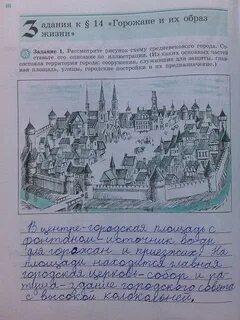 Задания к § 14 «Горожане и их образ
жизни»
Задание 1. Рассмотрите рисунок-схему средневекового города. Со-
ставьте его описание по иллюстрации. (Из каких основных частей
состояла территория города; сооружения, служившие для защиты, глав-
ная площадь, улицы, городские постройки и их предназначение.)
В центре-городская площадь с
фонтаном-источник воды
для горожан и приезжих. На
площади находится главная
городская церковь-собор и ра-
туша-здание городского совета
с высокой колокольней.